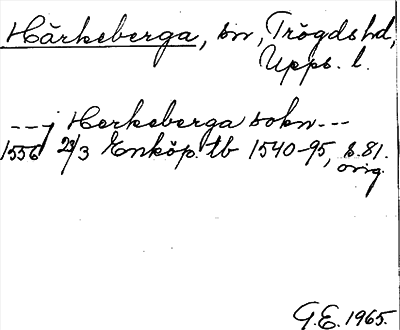 Härkeberga, sn, Trögds hd,
Upps. l.
---j Herkeberga sokn---
1556 23/3 Enköp. tb 1540-95, s. 81.
orig.
G.E. 1965.